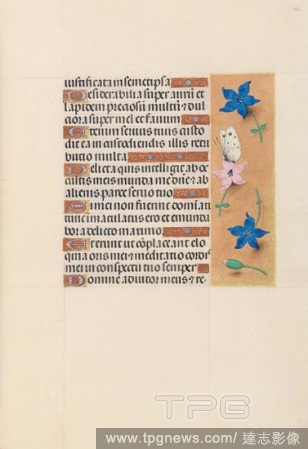 iustificata in semetipsa
Desiderabilia super aurū et
lapidem preciosū multū: ⁊ dul
ciora super mel et fauum
Etenim seruus tuus custo
dit ea in custodiendis illis retri
butio multa
Delicta quis intelligit ab oc
cultis meis munda me dn̄e: ⁊ ab
alienis parce seruo tuo
Si mei non fuerint dominati
tunc immaculatus ero et emunda
bor a delicto maximo
Et erunt ut cōplaceant elo
quia oris mei: ⁊ meditatio cordis
mei in conspectu tuo semper
Domine adiutor meus: ⁊ re
TPG
www.tpgnews.com/達志影像